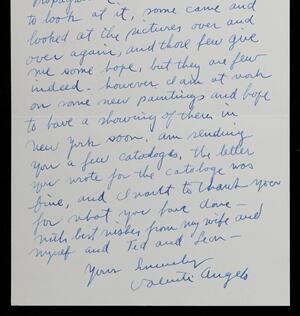 to look at it, some came and
looked at the pictures over and
over again, and those few give
me some hope, but they are few
indeed - however I am at work
on some new paintings and hope
to have a showing of them in
New York soon, am sending
you a few catologes, the letter
you wrote for the catologe was
fine, and I want to thank you
for what you have done -
with best wishes from my wife and
myself and Ted and
Yours Sincerely
Valenti Angelo